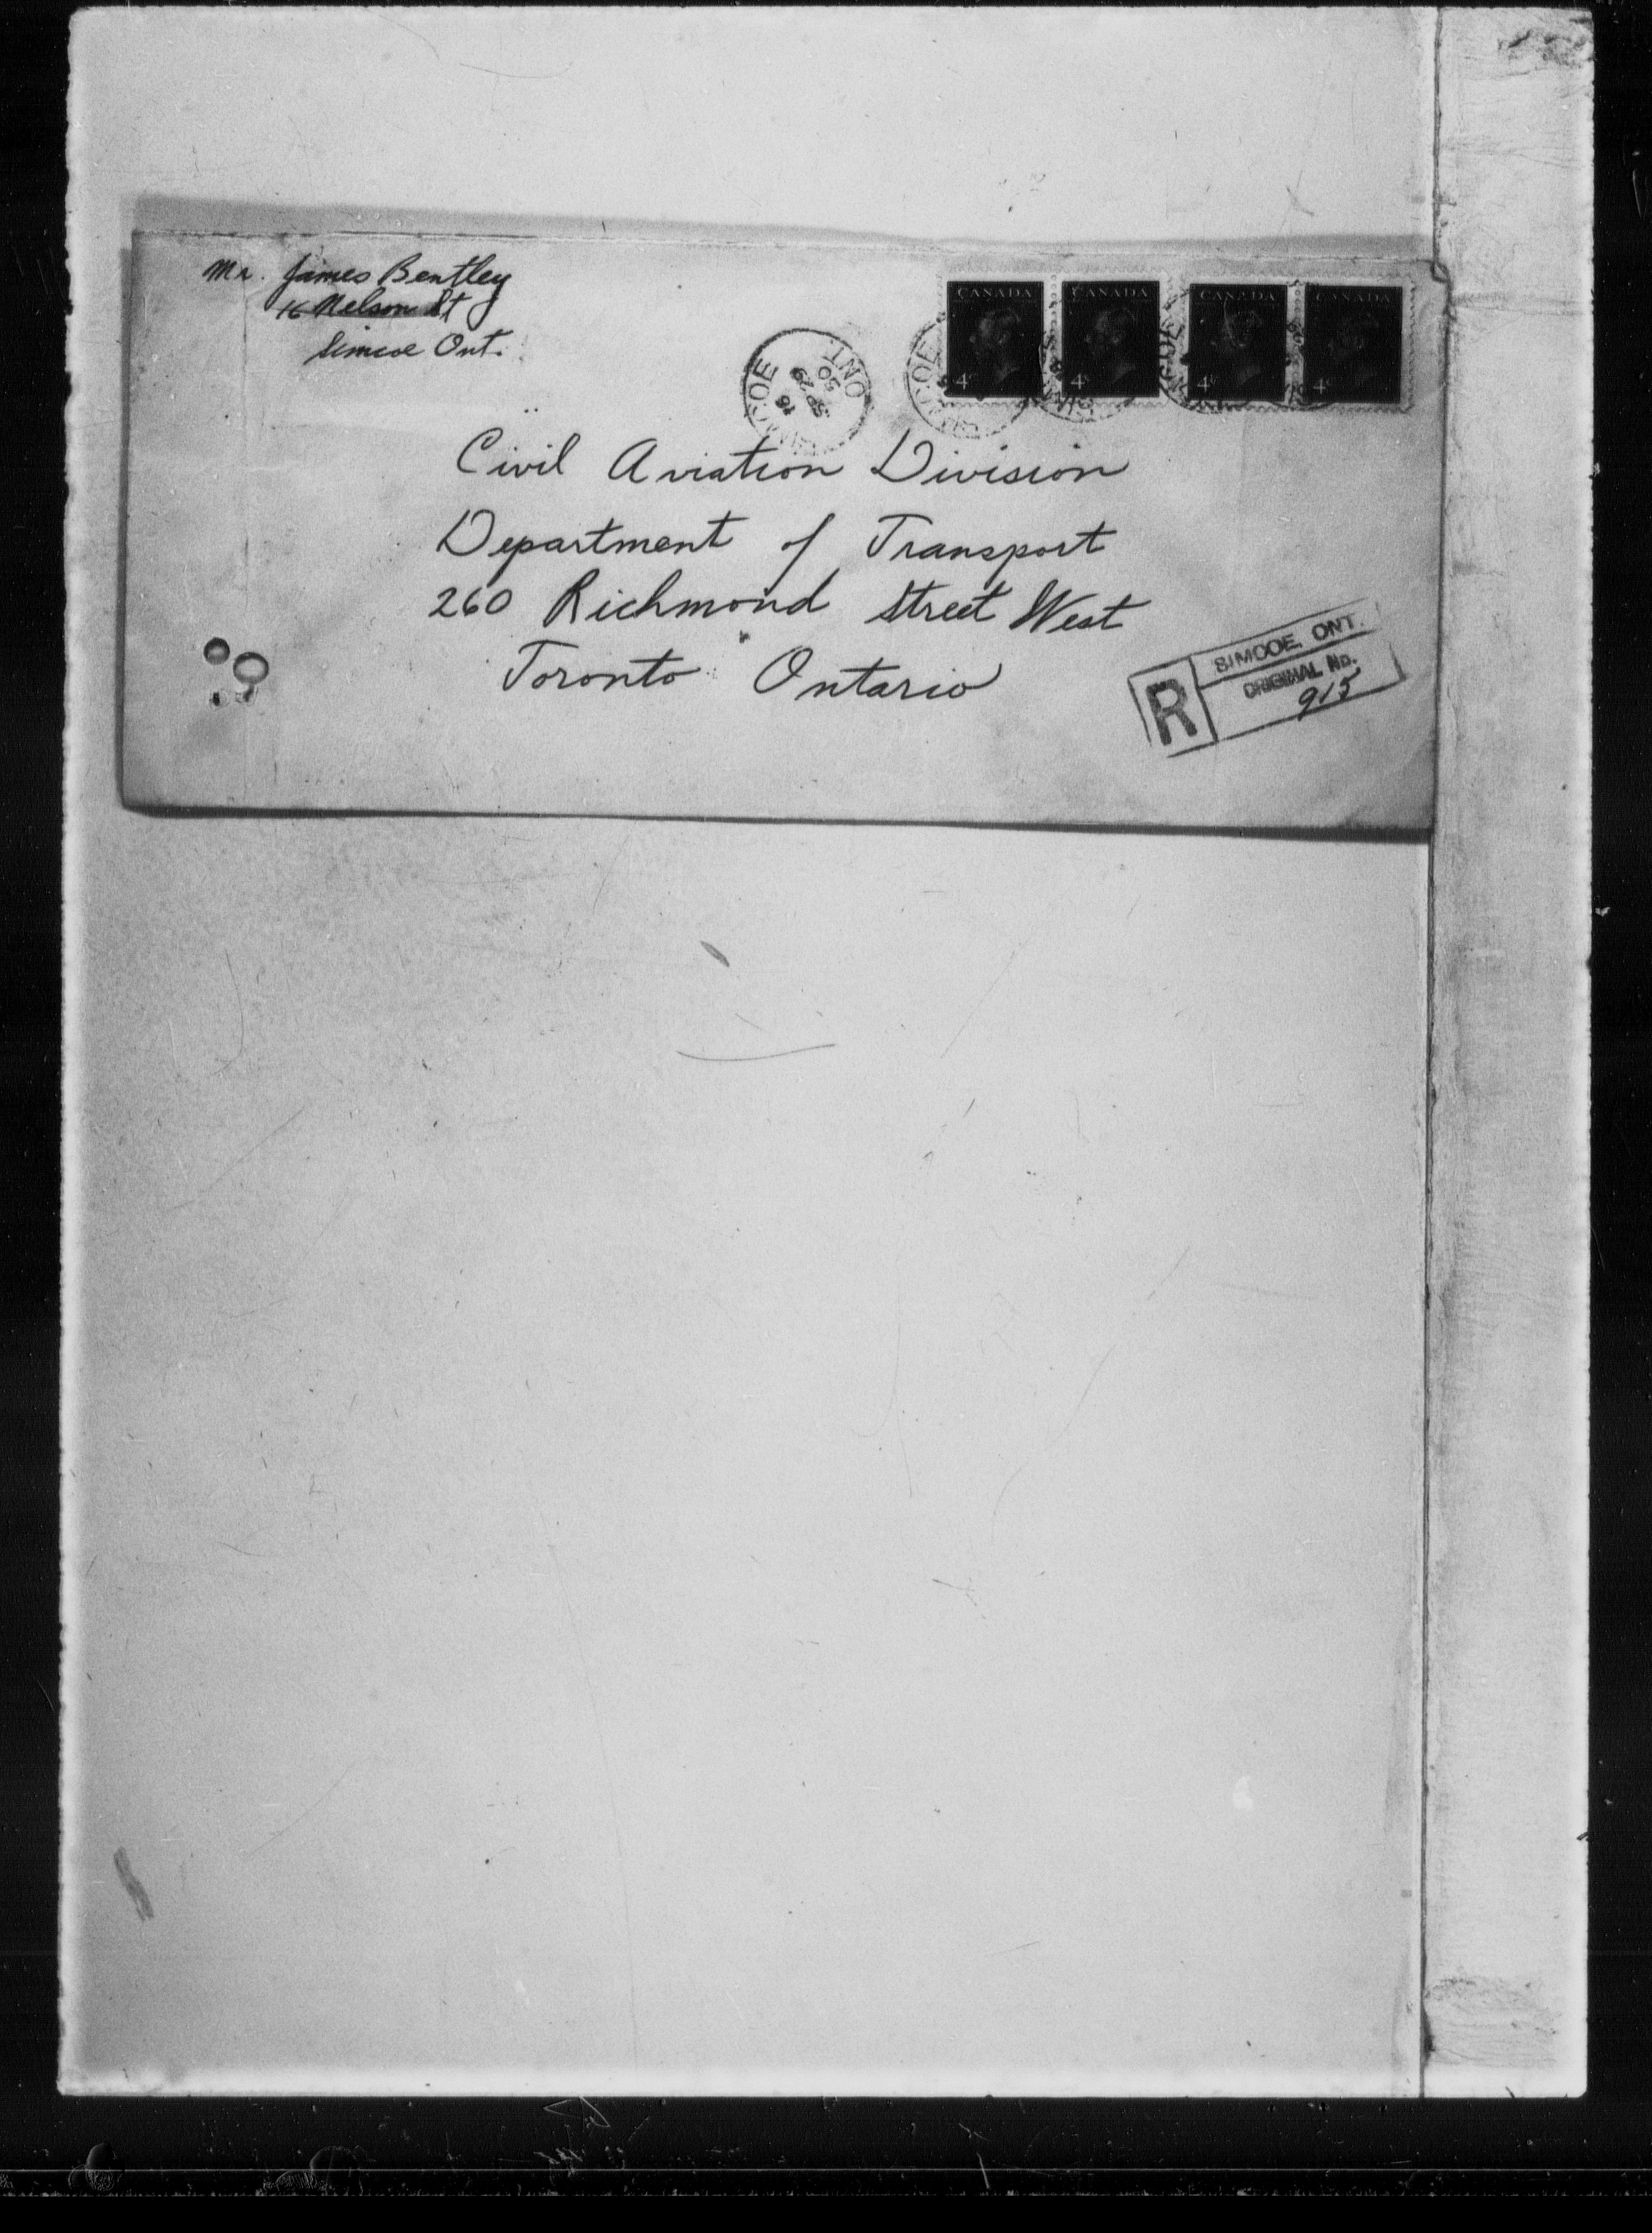 Mr. James Bentley
16 Nelson St
Simcoe Ont.
CANADA CANADA CANADA CANADA
4c 4c 4c 4c
SIMCOE ONT.
16
SP 29
50
Civil Aviation Division
Department of Transport
260 Richmond Street West
Toronto Ontario
R
SIMCOE, ONT.
ORIGINAL No.
915